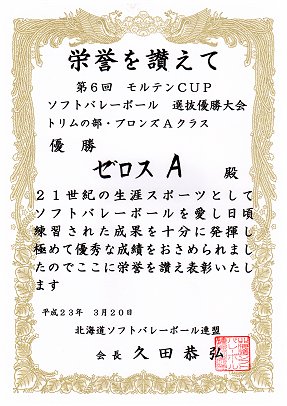 栄誉を讃えて
第6回 モルテンCUP
ソフトバレーボール 選抜優勝大会
トリムの部・ブロンズAクラス
優勝
ゼロス A 殿
21世紀の生涯スポーツとして
ソフトバレーボールを愛し日頃
練習された成果を十分に発揮し
極めて優秀な成績をおさめられまし
たのでここに栄誉を讃え表彰いたし
ます
平成23年 3月20日
北海道ソフトバレーボール連盟
会長 久田恭弘